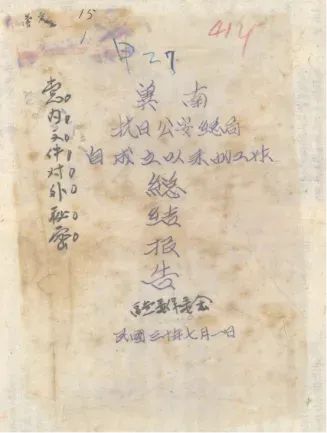 15
1
414
甲27
党内文件对外秘密
冀南
抗日公安總局
自成立以来的工作
總
结
报
告
民國三十年七月一日